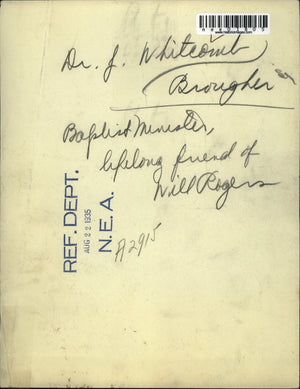 Dr. J. Whitcomb
Brougher
Baptist Minister,
lifelong friend of
Will Rogers
REF. DEPT.
AUG 22 1935
N. E. A.
A2915